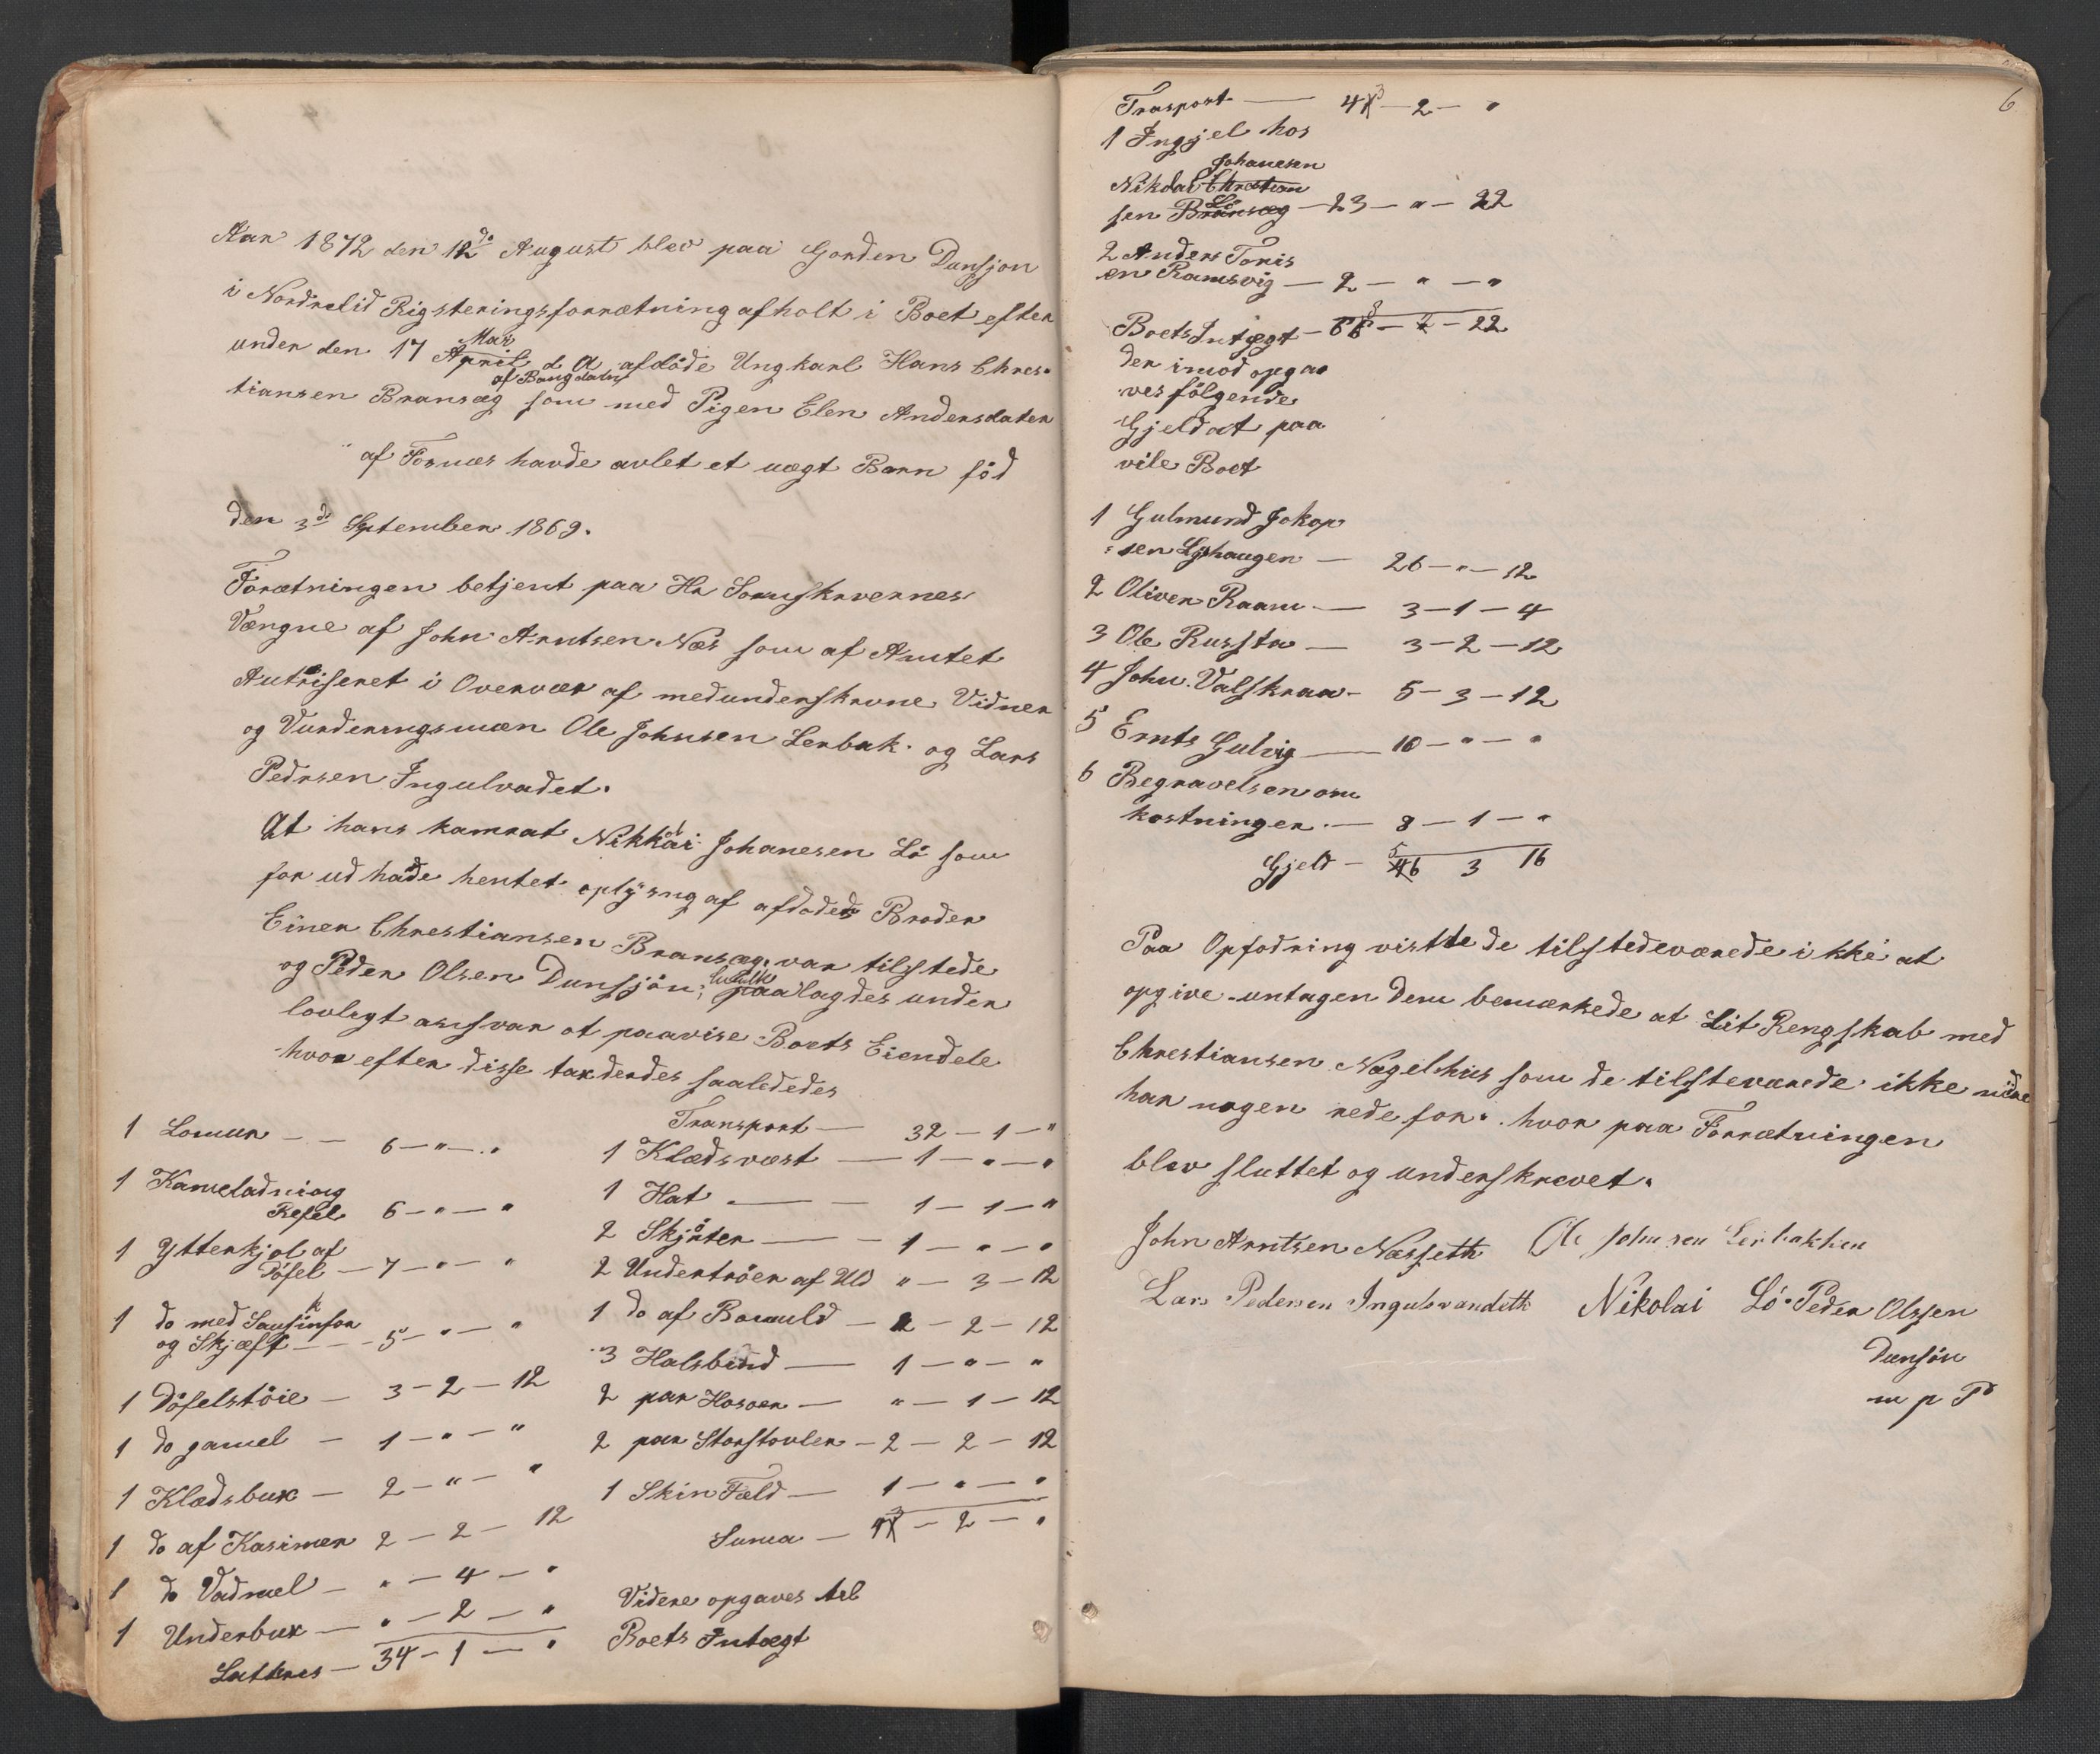 Aar 1872 den 12de August blev paa Gorden Dunsjon
i Nordrelid Rigsteringsforrætning afholt i Boet efter
under den 17 April Mas d A afdöde Ungkarl Hans Chres-
tiansen Bransæg af Bangdalen som med Pigen Elen Andersdater
af Fosnæs havde avlet et uægt Barn föd
den 3de September 1869.
Forætningen betjent paa Hr Sorenskrvernes
Vængne af John Arntsen Næs som af Amtet
Autriseret i Overvær af medunderskrvne Vidner
og Vurderingsmæn Ole Johnsen Lerbak og Lars
Pedrsen Ingulvadet.
At hans kamrat Nikkolai Johanesen Lö som
for ud hade hentet oplysng af afdødes Broder
Einer Chrestiansen Bransæg, var tilstede
og Peder Olsen Dunsjön, paalagdes under
lovlegt ansvar at paavise Boets Eiendele
hvor efter disse taxderdes saalededes
1 Lomur — 6 — " — "
1 Kameladning
Refel 6 — " — "
1 Ytterkjol af
Döfel — 7 — " — "
1 do med Sausinfor
og Skjæft — 5 — " — "
1 Döfelstöie — 3 — 2 — 12
1 do gamel — 1 — " — "
1 Klædsbux — 2 — " — "
1 do af Kasimer 2 — 2 — 12
1 do Vadmel — " — 4 — "
1 Underbux — " — 2 — "
Latteres — 34 — 1 — "
Transport — 32 — 1 — "
1 Klædsvæst — 1 — " — "
1 Hat — 1 — 1 — "
2 Skjörter — 1 — " — "
2 Undertröer af Uld " — 3 — 12
1 do af Bomuld — 2 — 2 — 12
3 Halsbind — 1 — " — "
2 par Hosoer — " — 1 — 12
2 par Storstovler — 2 — 2 — 12
1 Skin Fæld — 1 — " — "
Suma — 43 — 2 — "
Videre opgaves til
Boets Intægt
6
Trasport — 43 — 2 — "
1 Ingjel hos
Johanesen
Nikolai Chrestian
sen Bransæg Lö — 23 — " — 22
2 Anders Toris
en Ramsvig — 2 — " — "
Boets Intægt — 68 — 2 — 22
der imod opga
ves fölgende
Gjeld at paa
vile Boet
1 Gulmund Jokop
sen Lyshaugen — 26 — " — 12
2 Oliver Raam — 3 — 1 — 4
3 Ole Russta — 3 — 2 — 12
4 John Valskraa — 5 — 3 — 12
5 Ernts Gulvig — 10 — " — "
6 Begravelsen om
kostninger — 8 — 1 — "
Gjeld — 56 3 16
Paa Opfodring vistte de tilstedeværede ikke at
opgive untagen dem bemærkede at Lit Rengskab med
Chrestiansen Nagelhus som de tilsteværede ikke vidre
har nogen rede for. hvor paa Forrætningen
blev sluttet og underskrevet.
John Arntsen Næsseth Ole Johnsen Lerbakken
Lars Pedersen Ingulsvandeth Nikolai Lö Peder Olssen
Dunsjön
m p P